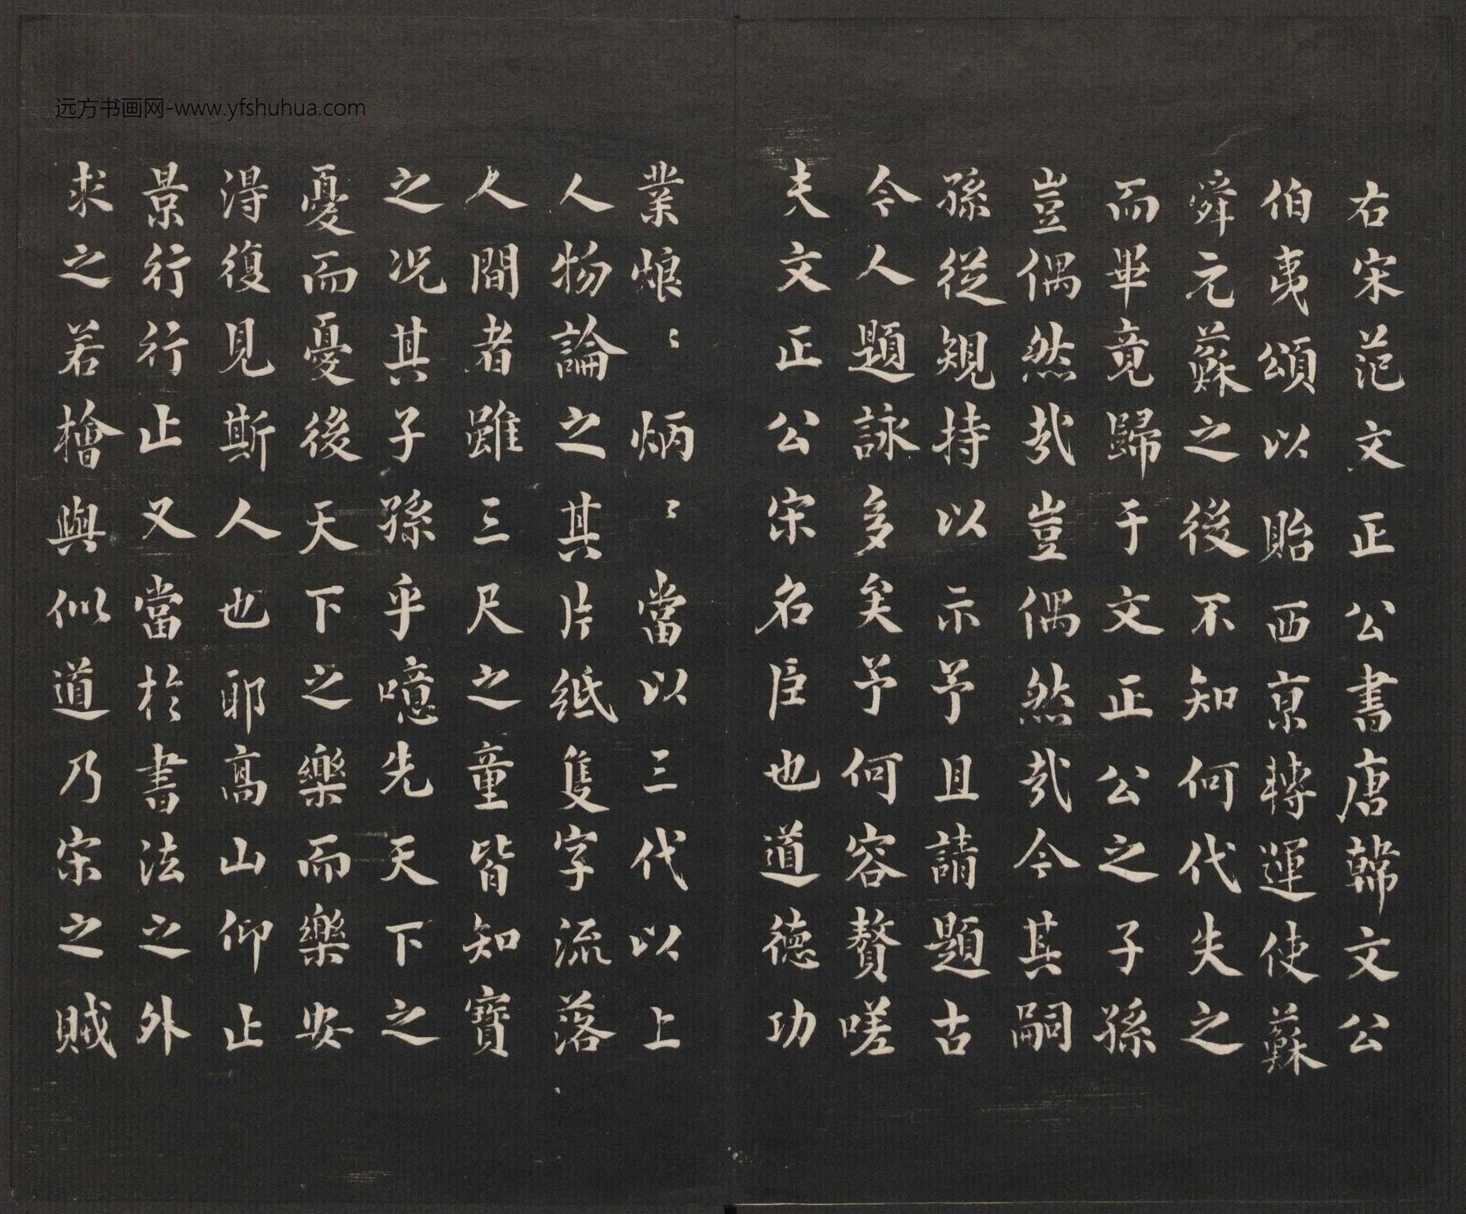 远方书画网-www.yfshuhua.com
右宋范文正公書唐韓文公
伯夷頌以貽西京轉運使蘇
舜元蘇之後不知何代失之
而畢竟歸于文正公之子孫
豈偶然哉豈偶然哉今其嗣
孫從規持以示予且請題古
今人題詠多矣予何容贅嗟
夫文正公宋名臣也道德功
業烺〻炳〻當以三代以上
人物論之其片紙隻字流落
人間者雖三尺之童皆知寶
之况其子孫乎噫先天下之
憂而憂後天下之樂而樂安
得復見斯人也耶高山仰止
景行行止又當於書法之外
求之若檜與似道乃宋之賊